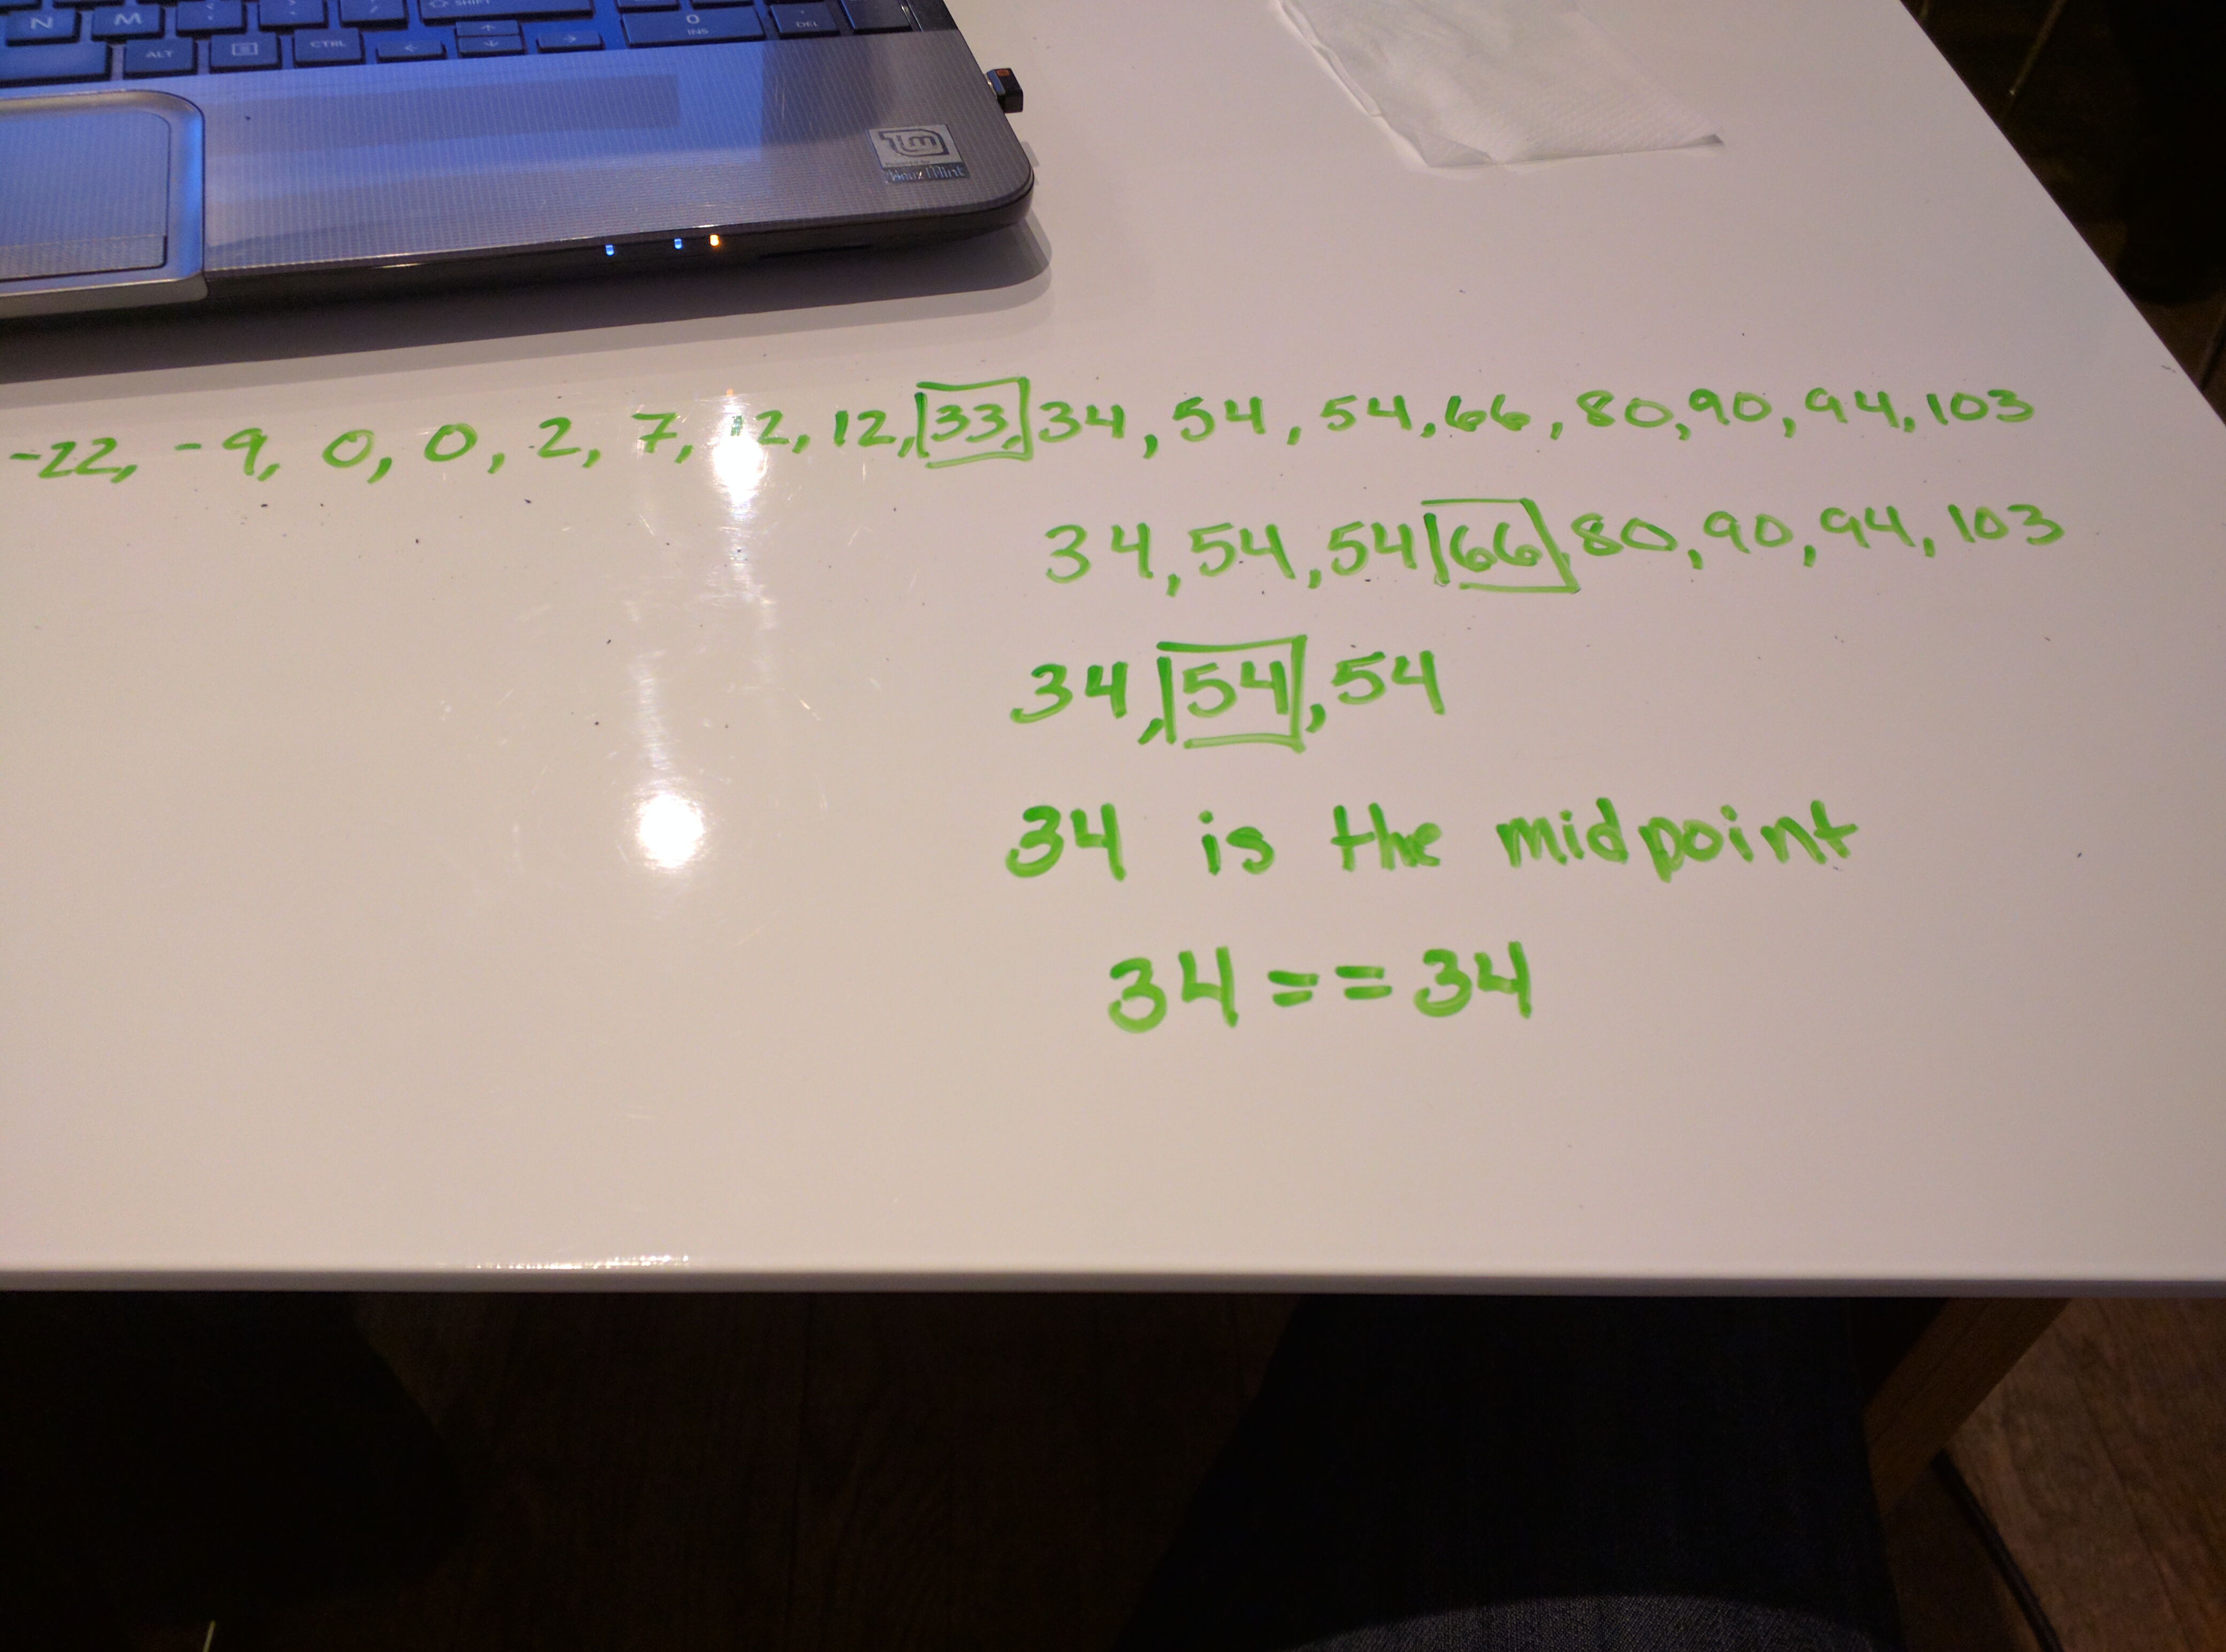 N M SHIFT 0 INS . DEL
ALT CTRL
Linux Mint
-22, -9, 0, 0, 2, 7, 12, 12, 33, 34, 54, 54, 66, 80, 90, 94, 103
34, 54, 54 66, 80, 90, 94, 103
34, 54, 54
34 is the midpoint
34 == 34